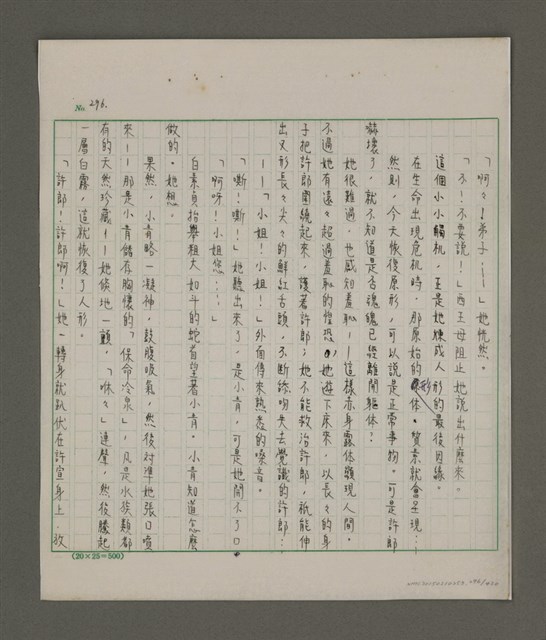 No. 296.
「啊々！弟子……」她恍然。
「不！不要說！」西王母阻止她說出什麼來。
這個小小觸机，正是她煉成人形的最後因緣。
在生命出現危机時，那原始的形体、質素就會呈現……
然則，今天恢復原形，可以說是正常事物。可是許郎
嚇壞了，就不知道是否魂魄已經離開軀体？
她很難過，也感知羞恥──這樣赤身露体顯現人間。
不過她有遠々超過羞恥的惶恐，她遊下床來，以長々的身
子把許郎圍繞起來，護著許郎；她不能救治許郎，祇能伸
出叉形長々尖々的鮮紅舌頭，不斷舔吻失去覺識的許郎……
──「小姐！小姐！」外面傳來熟悉的嗓音。
「嘶！嘶！」她聽出來了，是小青，可是她開不了口。
「啊呀！小姐您……」
白素貞抬舉粗大如斗的蛇首望著小青。小青知道怎麼
做的。她想。
果然，小青略一凝神，鼓腹吸氣，然後對準她張口噴
來──那是小青儲存胸懷的「保命冷泉」，凡是水族類都
有的天然珍藏──她倏地一顫，「咻々」連聲，然後騰起
一層白霧，這就恢復了人形。
「許郎！許郎啊！」她一轉身就趴伏在許宣身上，放
(20×25=500)